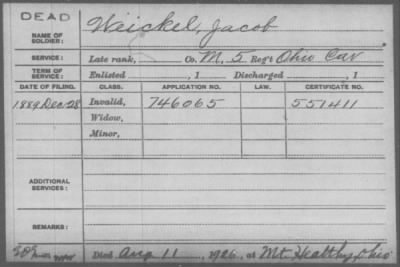 DEAD
NAME OF SOLDIER: Weickel, Jacob
SERVICE: Late rank, Co. M, 5 Reg't Ohio Cav
TERM OF SERVICE: Enlisted , 1 Discharged , 1
DATE OF FILING. CLASS. APPLICATION NO. LAW. CERTIFICATE NO.
1889 Dec 28 Invalid, 746065 551411
Widow,
Minor,
ADDITIONAL SERVICES:
REMARKS:
Died Aug 11, 1926, at Mt. Healthy, Ohio